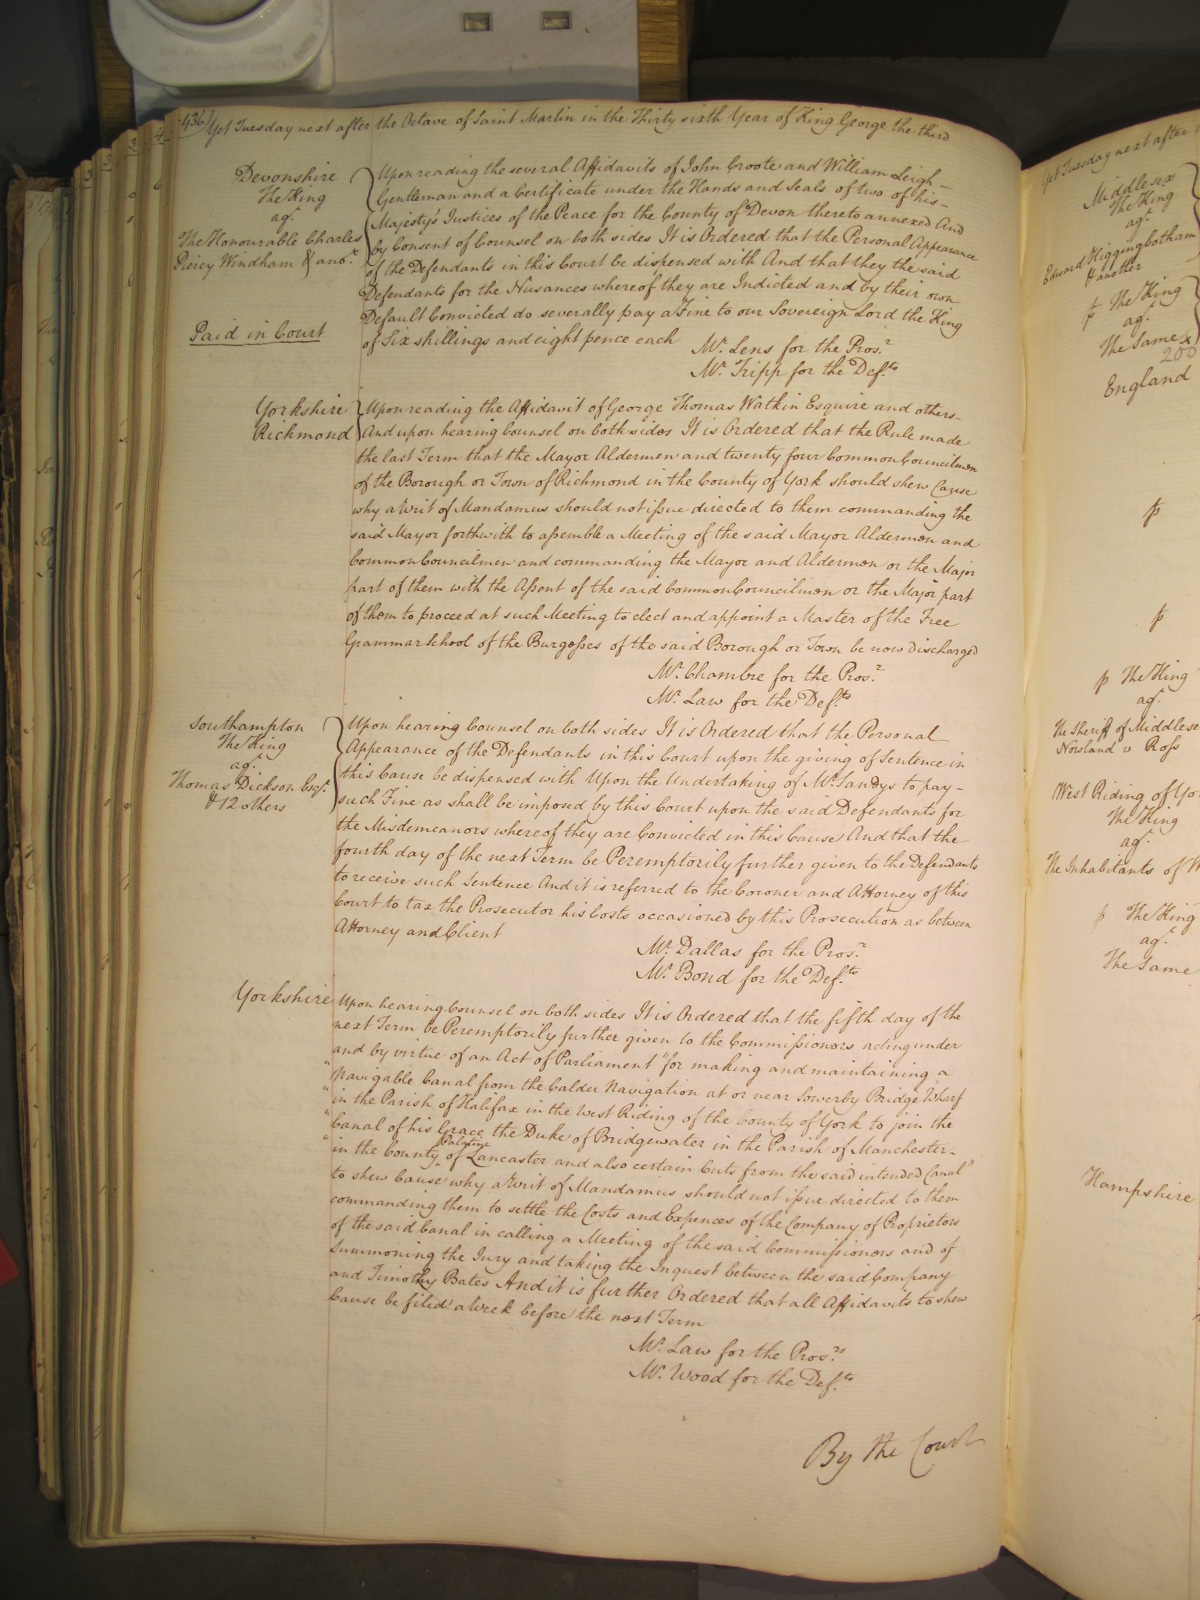 436 Yet Tuesday next after the Octave of Saint Martin in the Thirty sixth Year of King George the third
Devonshire
The King
agt.
The Honourable Charles
Piercy Windham & anor.
Paid in Court
Upon reading the several Affidavits of John Croote and William Leigh
Gentleman and a Certificate under the Hands and Seals of two of his
Majesty's Justices of the Peace for the County of Devon thereto annexed And
by Consent of Counsel on both sides It is Ordered that the Personal Appearance
of the Defendants in this Court be dispensed with And that they the said
Defendants for the Nusances whereof they are Indicted and by their own
Default Convicted do severally pay a Fine to our Sovereign Lord the King
of Six shillings and eight pence each
Mr. Lens for the Prosr.
Mr. Tripp for the Defts.
Yorkshire
Richmond
Upon reading the Affidavit of George Thomas Watkin Esquire and others
And upon hearing Counsel on both sides It is Ordered that the Rule made
the last Term that the Mayor Aldermen and twenty four Common Councilmen
of the Borough or Town of Richmond in the County of York should shew Cause
why a Writ of Mandamus should not issue directed to them commanding the
said Mayor forthwith to assemble a Meeting of the said Mayor Aldermen and
Common Councilmen and commanding the Mayor and Aldermen or the Major
part of them with the Assent of the said Common Councilmen or the Major part
of them to proceed at such Meeting to elect and appoint a Master of the Free
Grammar School of the Burgesses of the said Borough or Town be now discharged
Mr. Chambre for the Prosr.
Mr. Law for the Defts.
Southampton
The King
agt.
Thomas Dickson Esqr.
& 12 others
Upon hearing Counsel on both sides It is Ordered that the Personal
Appearance of the Defendants in this Court upon the giving of Sentence in
this Cause be dispensed with Upon the Undertaking of Mr. Sandys to pay
such Fine as shall be imposed by this Court upon the said Defendants for
the Misdemeanors whereof they are Convicted in this Cause And that the
fourth day of the next Term be Peremptorily further given to the Defendants
to receive such Sentence And it is referred to the Coroner and Attorney of this
Court to tax the Prosecutor his Costs occasioned by this Prosecution as between
Attorney and Client
Mr. Dallas for the Prosr.
Mr. Bond for the Defts.
Yorkshire
Upon hearing Counsel on both sides It is Ordered that the fifth day of the
next Term be Peremptorily further given to the Commissioners acting under
and by virtue of an Act of Parliament "for making and maintaining a
"Navigable Canal from the Calder Navigation at or near Sowerby Bridge Wharf
"in the Parish of Halifax in the West Riding of the County of York to join the
"Canal of his Grace the Duke of Bridgewater in the Parish of Manchester
"in the County Palatine of Lancaster and also certain Cuts from the said intended Canal"
to shew Cause why a Writ of Mandamus should not issue directed to them
commanding them to settle the Costs and Expences of the Company of Proprietors
of the said Canal in calling a Meeting of the said Commissioners and of
Summoning the Jury and taking the Inquest between the said Company
and Timothy Bates And it is further Ordered that all Affidavits to shew
Cause be filed a Week before the next Term
Mr. Law for the Prosrs.
Mr. Wood for the Defts.
By the Court
Yet Tuesday next after
Middlesex
The King
agt.
Edward Higginbotham
& another
p The King
agt.
The Same
200
England
p
p
p The King
agt.
The Sheriff of Middlese
Nowland v Ross
West Riding of Yo
The King
agt.
The Inhabitants of W
p The King
agt.
The Same
Hampshire